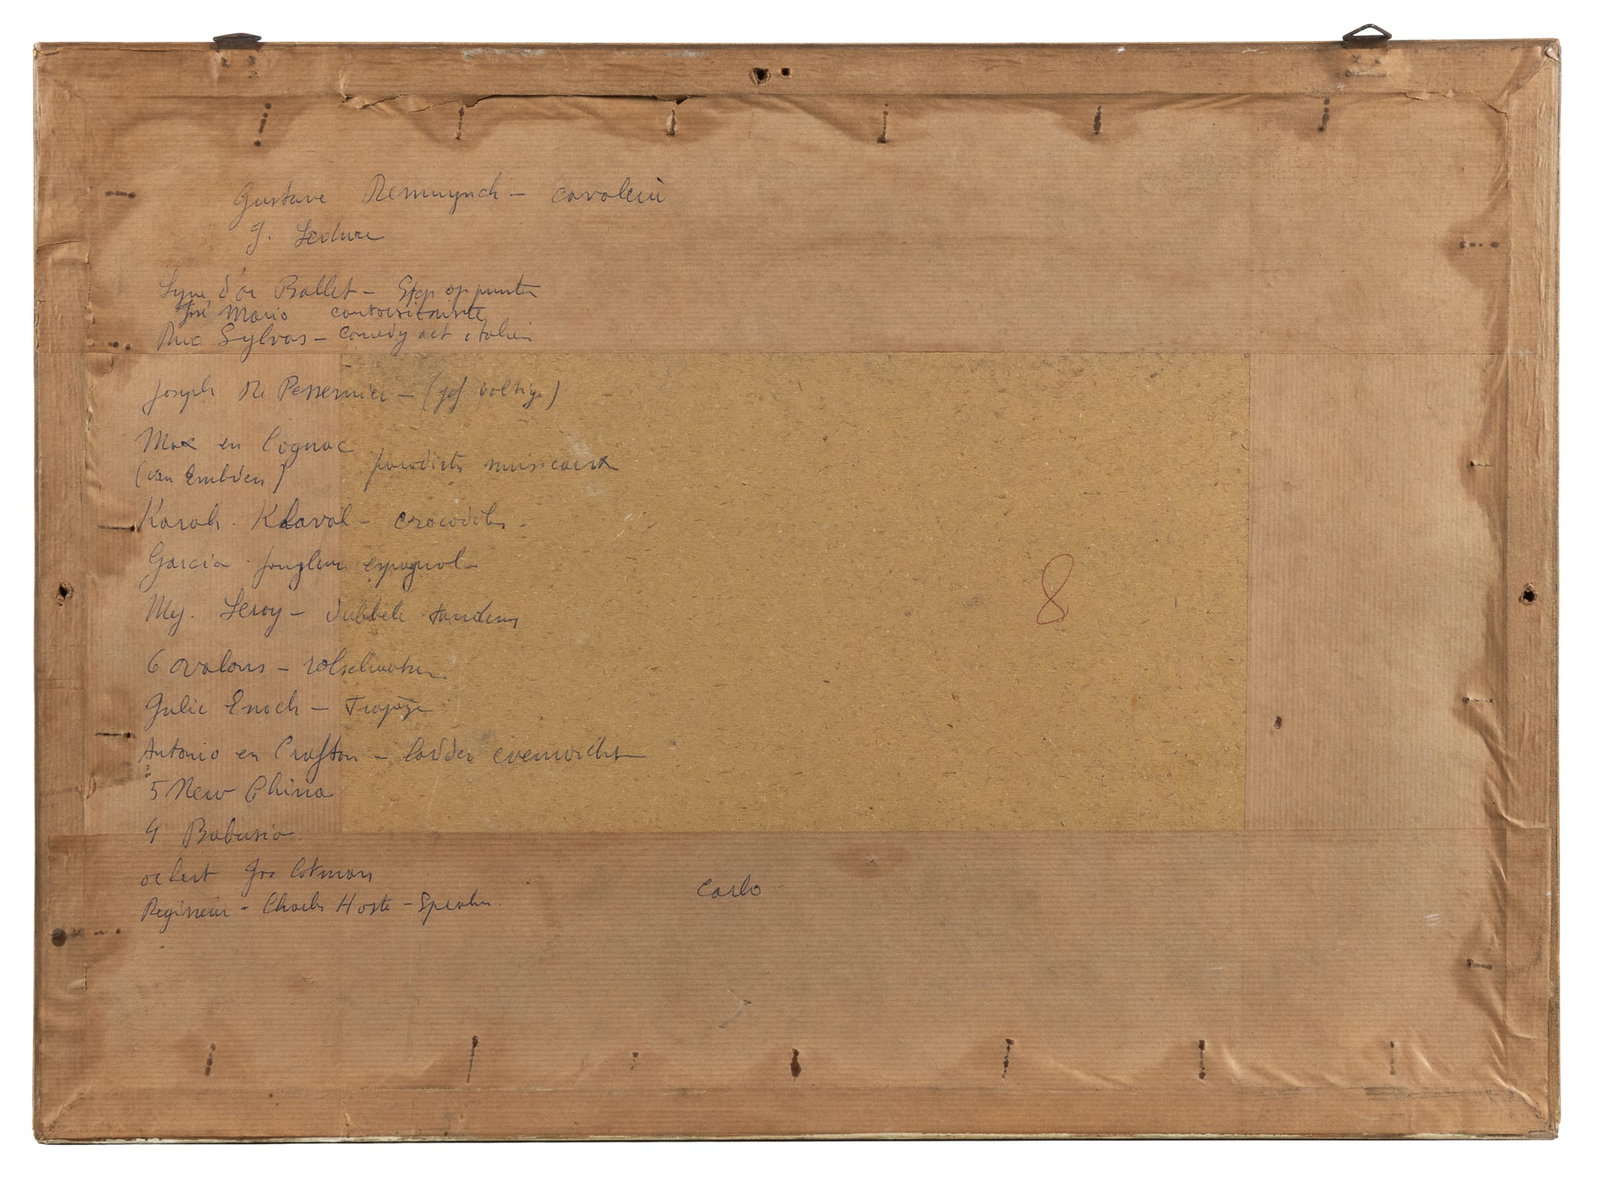 Gustave Demuynck - cavalerie
J. Leduc
Lyne d'or Ballet - Step op punten
José Mario contorsionniste
Duo Sylvas - comedy act italien
Joseph De Pessemier - (jef voltige)
Max en Cognac
(van Embden) parodistes musicaux
Karah. Khavak - crocodiles.
Garcia jongleur espagnol -
Mej. Leroy - dubbele tandem
6 avalons - rolschaatsen
Julie Enoch - Trapèze
Antonio en Crofton - ladder evenwicht
5 New China
4 Babusio
orkest
Regisseur - Charles Hoste -
Carlo
8